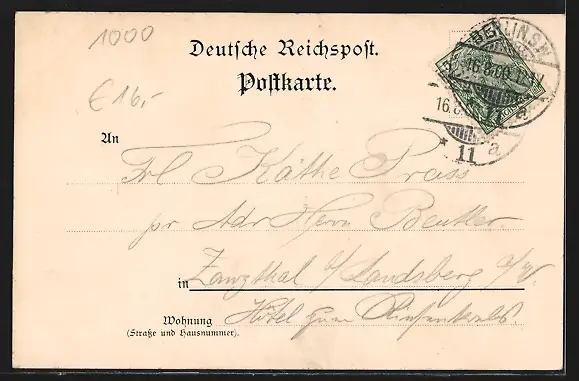 1000
Deutsche Reichspost.
Postkarte.
BERLIN S.W.
16.8.00. 1-
16.8
11 a
* 11 a
€ 16,-
An
Frl Käthe Prass
pr Adr Herrn Beutler.
in Zanzthal b/ Landsberg a/W.
Wohnung Hotel zum
(Straße und Hausnummer).